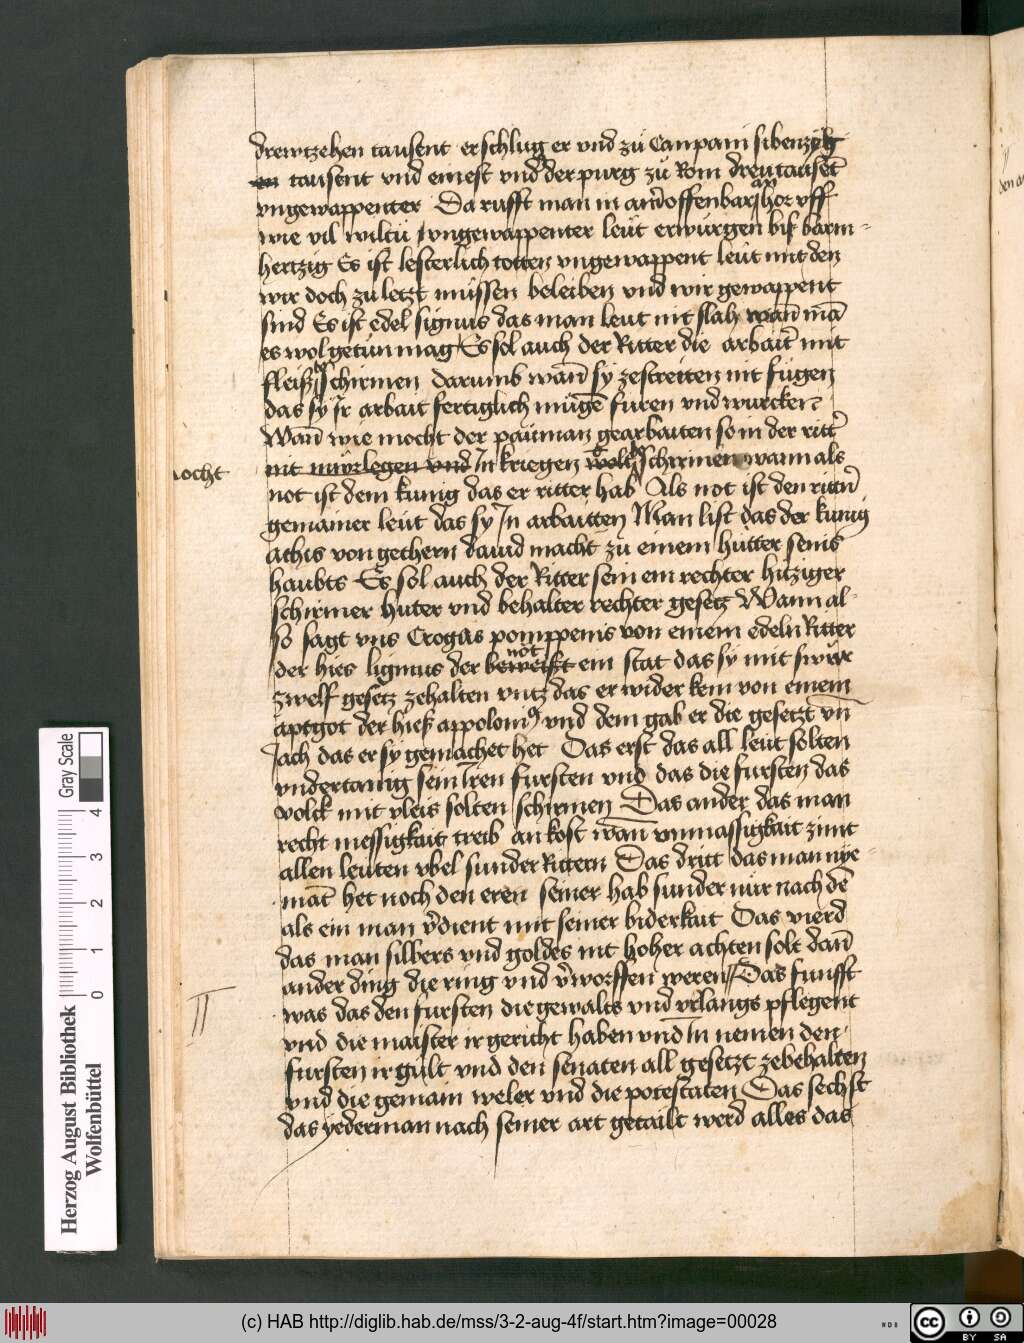 drewtzehen tausent erschlug er vnd zu Canpani sibenzigk
tausent vnd einest vnd der purg zu Rom drew tausēt
vngewappenter Da rufft man in offenbar vff
wie vil wiltu vngewappenter leut erwürgen biß barm-
hertzig Es ist lesterlich totten vngewappent leut mit den
wir doch zu letzt müssen beleiben vnd wir gewappent
sind Es ist edel signus das man leut nit slah wañ mā
es wol getun mag Es sol auch der Ritter die arbait mit
fleiß schirmen darumb wañ sy zestreiten nit fügen
das sy Ir arbait fertiglich mügē füren vnd wurcken
Wañ wie mocht der pauman gearbaiten so in der ritter
mocht
nit In kriegen schirmen wann als
not ist dem kunig das er ritter hab Als not ist den rittern
gemainer leut das sy In arbaitten Man list das der kunig
athis von gethern dauid macht zu einem hütter seins
haubts Es sol auch der Ritter sein ein rechter hitziger
schirmer huter vnd behalter rechter gesetz Wann al-
so sagt vns Trogus pomppeius von einem edeln Ritter
der hies ligmus der not
ein stat das sy mit swür
zwelf gesetz zehalten vntz das er wider kem von einem
aptgot der hieß appolomꝰ vnd dem gab er die gesetzt vñ
Jach das er sy gemachet het Das erst das all leut solten
vndertanig sein Iren fursten vnd das die fursten das
volck mit vleis solten schirmen Das ander das man
recht messigkait treib an kost wañ vnmassigkait zimt
allen leuten vbel sunder Rittern Das dritt das man nye-
māt het noch den eren seiner hab sunder nür nach dē
als ein man v̄dient mit seiner biderkait Das vierd
das man silbers vnd goldes nit hoher achten solt dañ
ander ding die ring vnd v̄worffen weren Das funfft
II
was das den fursten die gewalts vnd vrlaugs pflegent
vnd die maister ir gericht haben vnd In nemen den
fursten ir gült vnd den senaten all gesetzt zebehalten
vnd die gemain weler vnd die potestaten Das sechst
das yederman nach seiner art getailt werd alles das
Herzog August Bibliothek
Wolfenbüttel
0 1 2 3 4
Gray Scale
(c) HAB http://diglib.hab.de/mss/3-2-aug-4f/start.htm?image=00028
WDB
cc BY SA